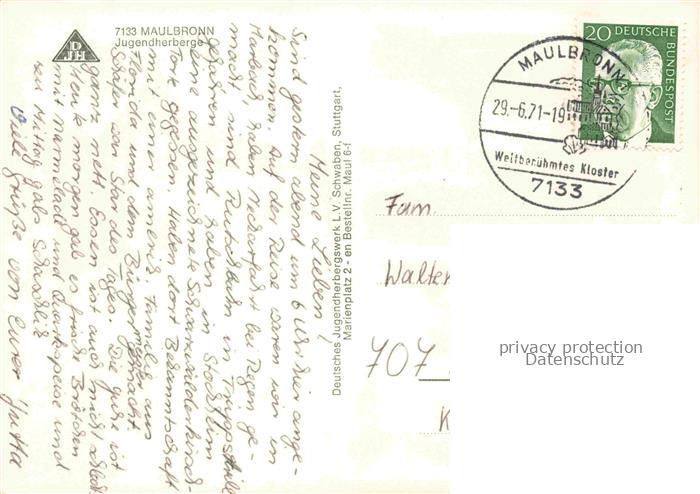 DJH
7133 MAULBRONN
Jugendherberge
Meine Lieben!
Sind gestern abend um 6 Uhr hier ange-
kommen. Auf der Reise waren wir in
Marbach, haben Neckarfahrt bei Regen ge-
macht, sind Rutschbahn in Trippstrill
gefahren und haben in Stockheim
eine ausgezeichnete Schwarzwälderkirsch-
Torte gegessen. Haben dort Bekanntschaft
mit einer amerik. Familie aus
Florida und dem Bürgermeister gemacht.
war Star des Tages. Die Juhe ist
ganz nett. Essen ist auch nicht schlecht.
Heute morgen gab es frische Brötchen
mit Marmelade und Quarkspeise und
zu Mittag gabs Schaschlik
Viele Grüße von Eurer Jutta
Deutsches Jugendherbergswerk L.V. Schwaben, Stuttgart,
Marienplatz 2 - en Bestellnr. Maul 6-f
20 DEUTSCHE
BUNDESPOST
MAULBRONN
29.-6.71-19
Weltberühmtes Kloster
7133
Fam.
Walter
707
K
privacy protection
Datenschutz